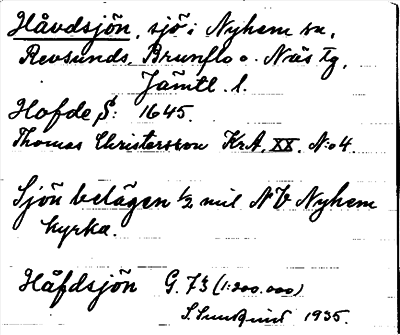 Håvdsjön, sjö i Nyhem sn,
Revsunds, Brunflo o. Näs tg,
Jämtl. l.
Hofde S: 1645.
Thomas Christersson KrA, XX, N:o 4.
Sjön belägen ½ mil NV Nyhem
kyrka.
Håfdsjön G. 73 (1:200.000)
S. Sundqvist 1935.